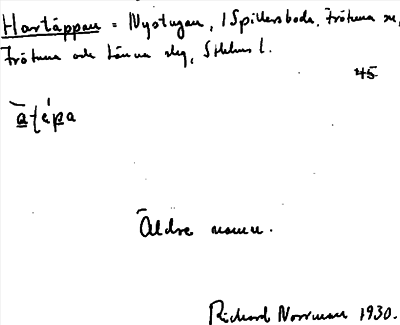 Hartäppan = Nystugan, i Spillersboda, Frötuna sn,
Frötuna och Länna slg, Sthlms l.
45
Äldre namn.
Richard Norrman 1930.